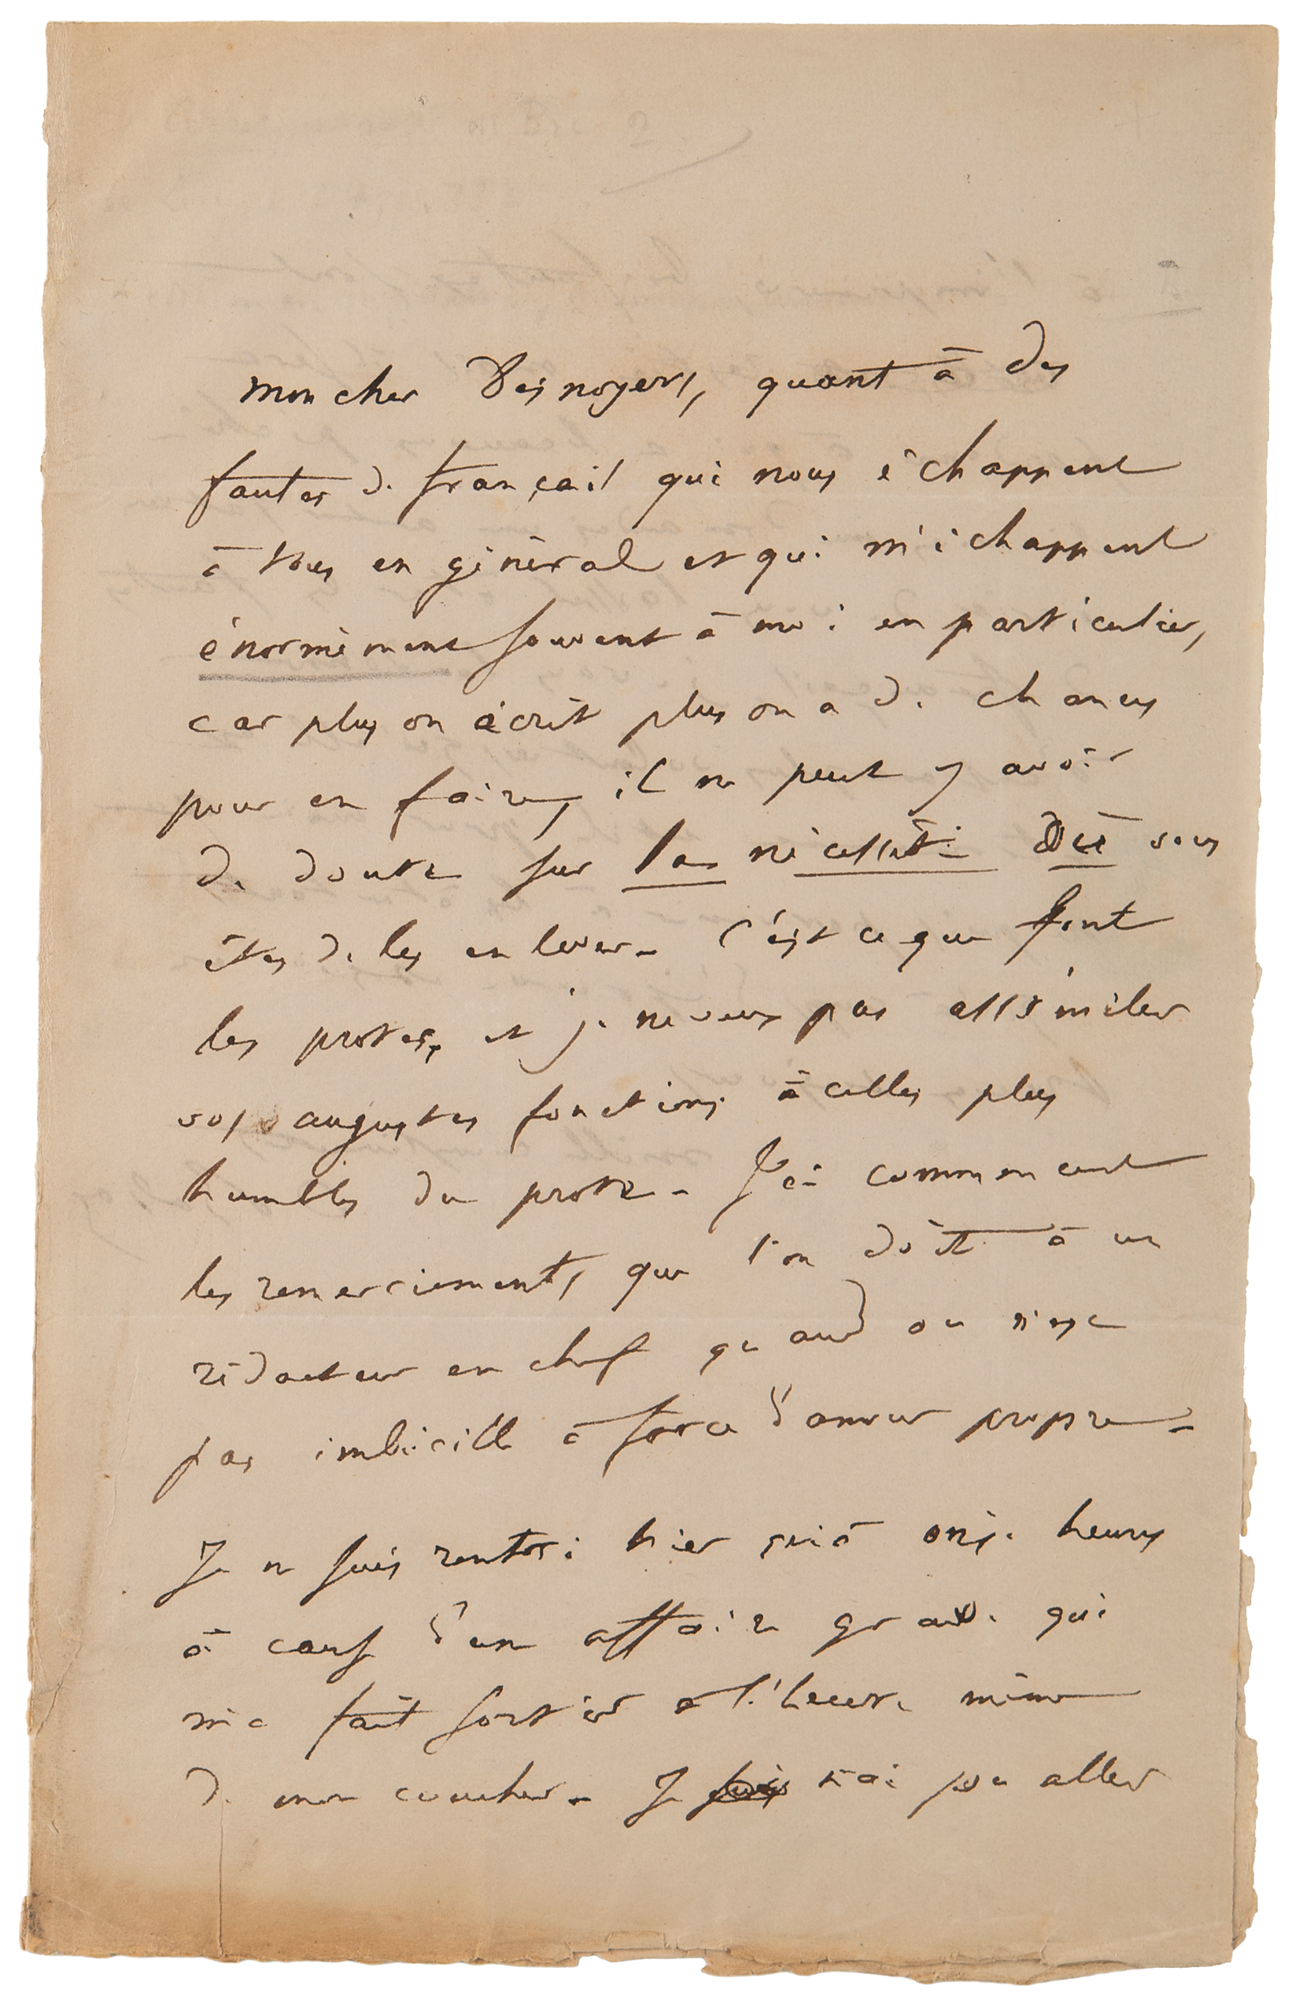 Mon cher Desnoyers, quant à des
fautes de français qui nous échappent
à tous en général et qui m'échappent
énormément souvent à moi en particulier,
car plus on écrit plus on a de chances
pour en faire, il ne peut y avoir
de doute sur la nécessité où vous
êtes de les enlever - C'est ce que font
les protes, et je ne veux pas assimiler
vos augustes fonctions à celles plus
humbles du prote - J'ai commencé
les remerciements que l'on doit à un
rédacteur en chef quand on n'est
pas imbécille à force d'amour propre -
Je ne suis rentré hier qu'à onze heures
à cause d'une affaire grave qui
m'a fait sortir à l'heure même
de mon coucher - Je n'ai pu aller